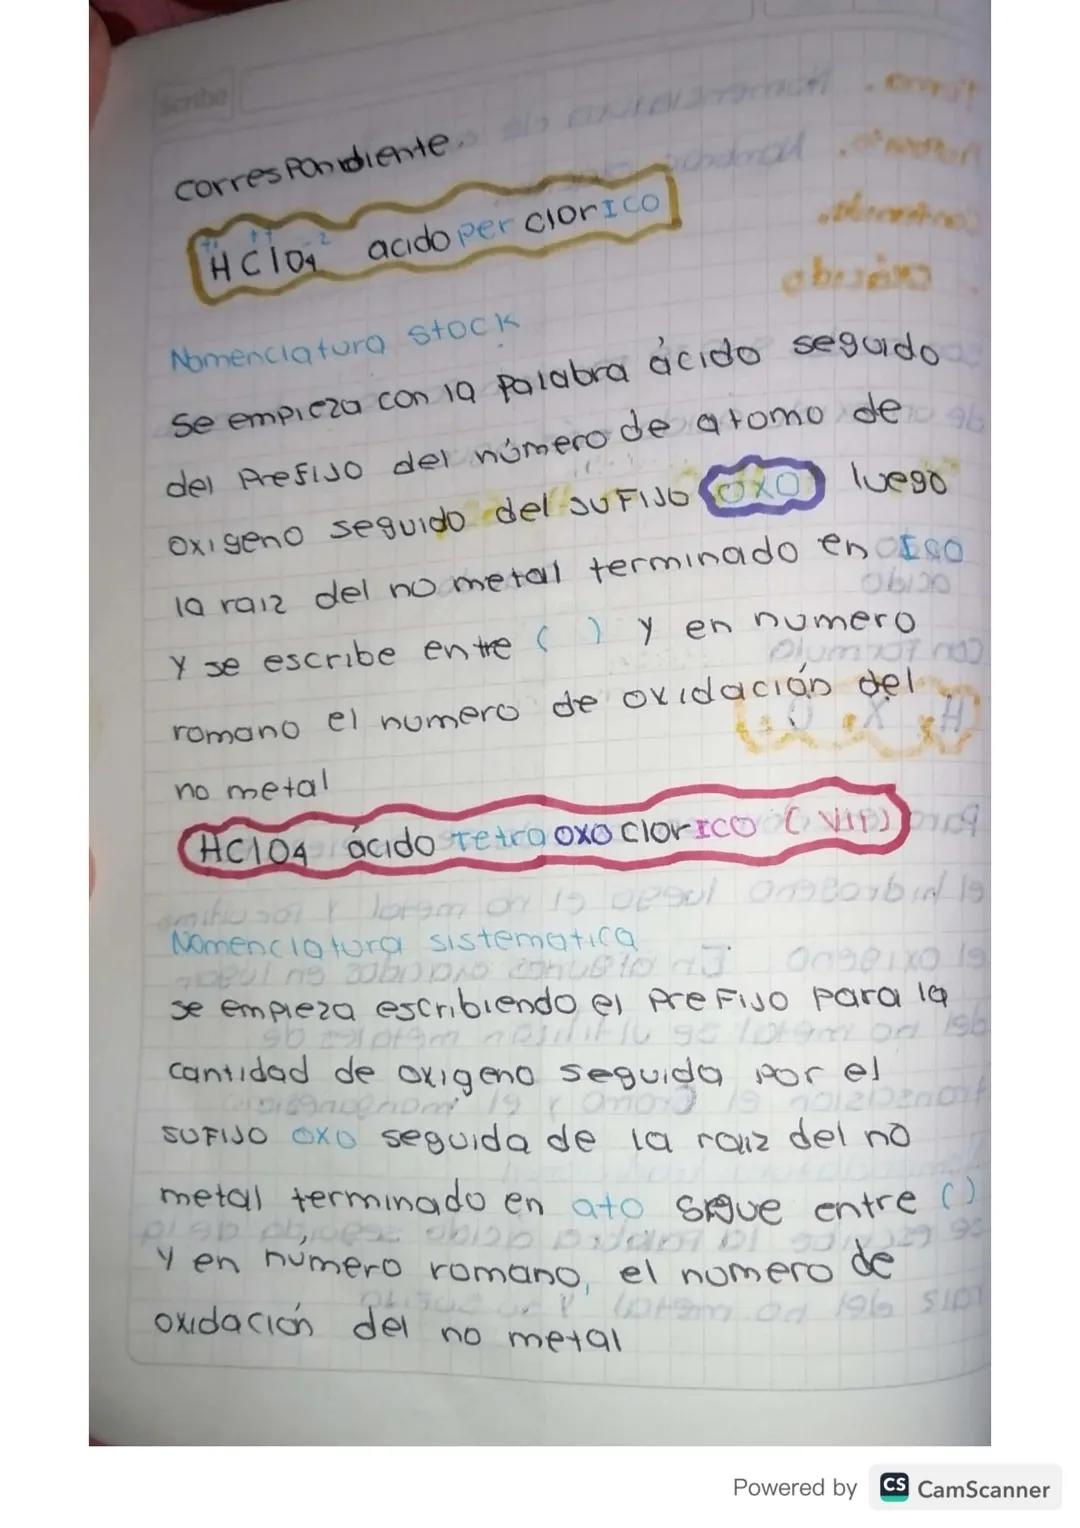 Scribe
correspondiente.
+1 +7 -2
HClO4 acido perclorIco
Nomenclatura stock
Se empieza con la palabra ácido seguido
del prefijo del número de atomo de
oxigeno seguido del sufijo oxo luego
la raiz del no metal terminado en Ico
y se escribe entre ( ) y en numero
romano el numero de oxidación del
no metal
HClO4 ácido tetraoxoclorIco (VII)
Nomenclatura sistematica
se empieza escribiendo el prefijo para la
cantidad de oxigeno seguida por el
sufijo oxo seguida de la raiz del no
metal terminado en ato sigue entre ()
y en número romano, el numero de
oxidación del no metal
Powered by CS CamScanner